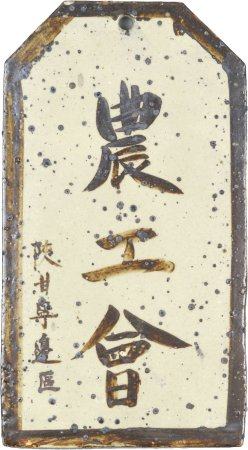 農工會
陜甘寧邊區